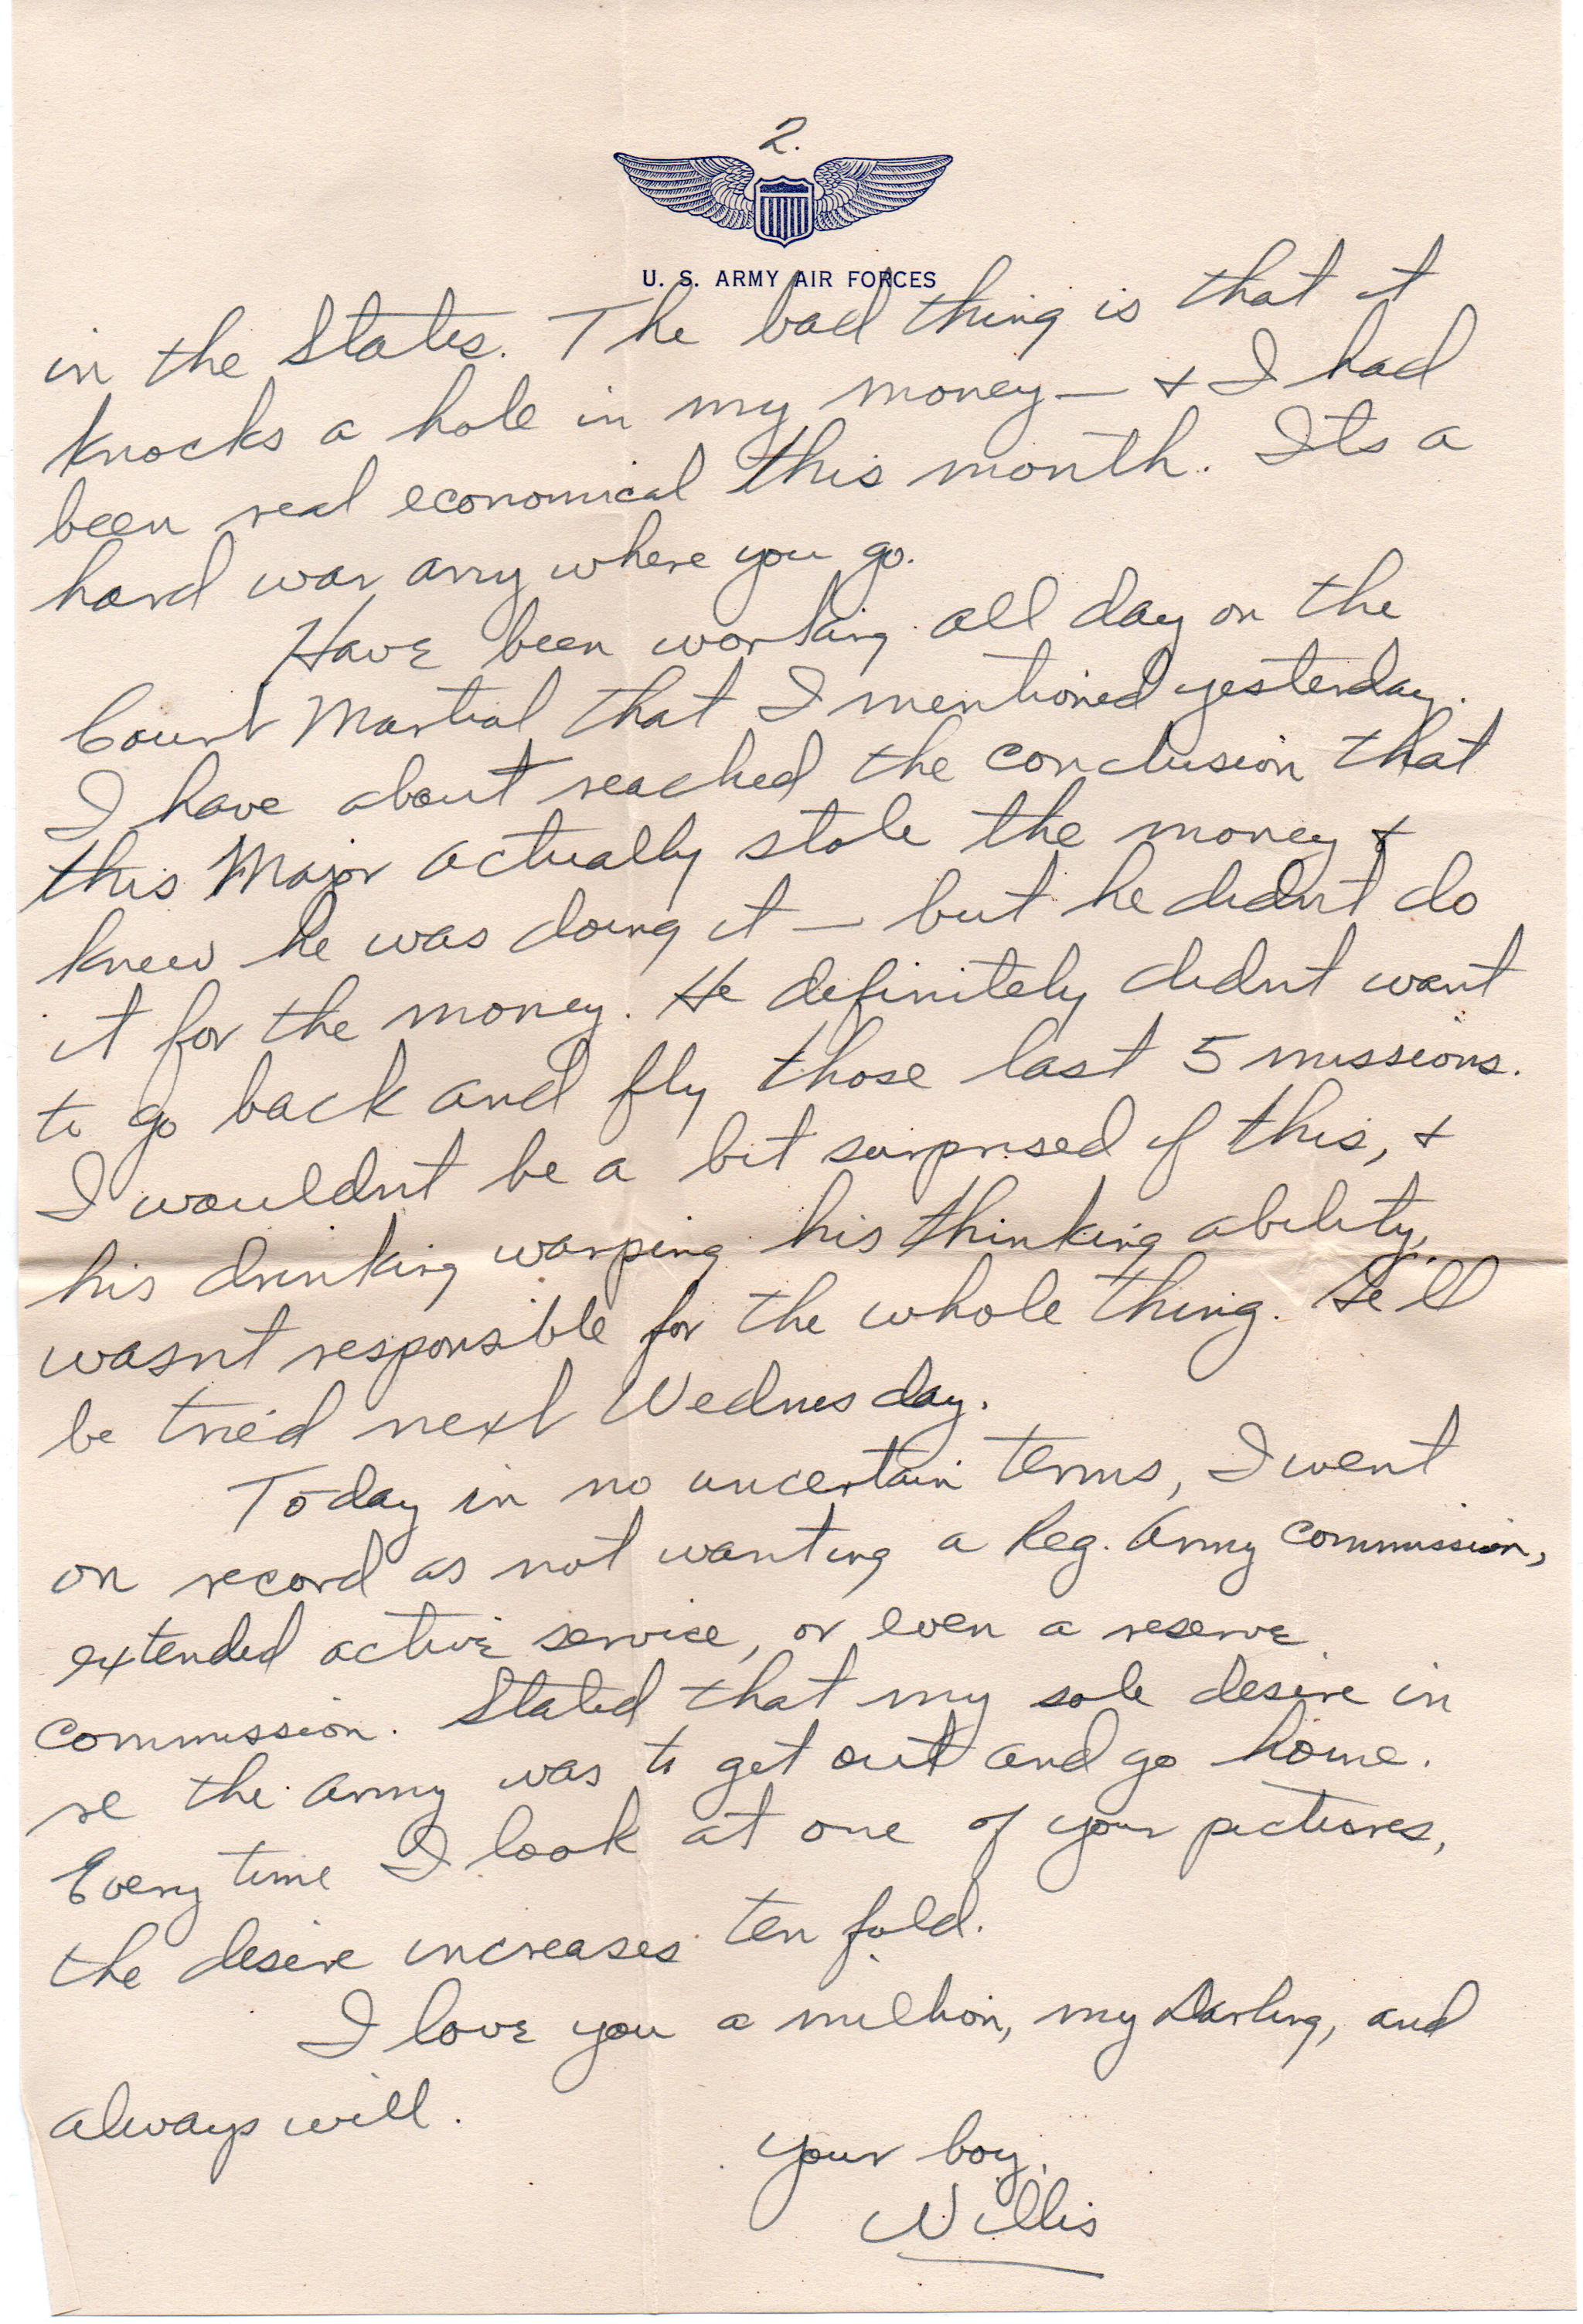 2.
U. S. ARMY AIR FORCES
in the States. The bad thing is that it
knocks a hole in my money — & I had
been real economical this month. Its a
hard war any where you go.
Have been working all day on the
Court Martial that I mentioned yesterday.
I have about reached the conclusion that
this Major actually stole the money &
knew he was doing it — but he didnt do
it for the money. He definitely didnt want
to go back and fly those last 5 missions.
I wouldnt be a bit surprised if this, &
his drinking warping his thinking ability,
wasnt responsible for the whole thing. He'll
be tried next Wednesday.
Today in no uncertain terms, I went
on record as not wanting a Reg. Army commission,
extended active service, or even a reserve
commission. Stated that my sole desire in
re the army was to get out and go home.
Every time I look at one of your pictures,
the desire increases ten fold.
I love you a million, my Darling, and
always will.
Your boy,
Willis